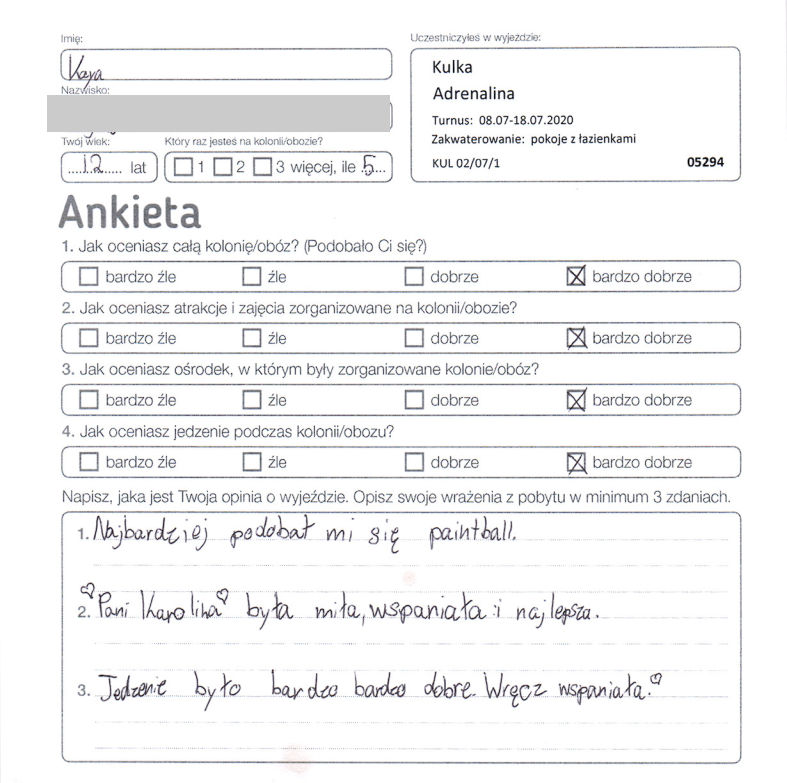 Imię:
Kaya
Nazwisko:
Twój wiek:
12 lat
Który raz jesteś na kolonii/obozie?
1 2 3 więcej, ile 5
Uczestniczyłeś w wyjeździe:
Kulka
Adrenalina
Turnus: 08.07-18.07.2020
Zakwaterowanie: pokoje z łazienkami
KUL 02/07/1 05294
Ankieta
1. Jak oceniasz całą kolonię/obóz? (Podobało Ci się?)
bardzo źle źle dobrze bardzo dobrze
2. Jak oceniasz atrakcje i zajęcia zorganizowane na kolonii/obozie?
bardzo źle źle dobrze bardzo dobrze
3. Jak oceniasz ośrodek, w którym były zorganizowane kolonie/obóz?
bardzo źle źle dobrze bardzo dobrze
4. Jak oceniasz jedzenie podczas kolonii/obozu?
bardzo źle źle dobrze bardzo dobrze
Napisz, jaka jest Twoja opinia o wyjeździe. Opisz swoje wrażenia z pobytu w minimum 3 zdaniach.
1. Najbardziej podobał mi się paintball.
2. Pani Karolina była miła, wspaniała i najlepsza.
3. Jedzenie było bardzo bardzo dobre. Wręcz wspaniała.